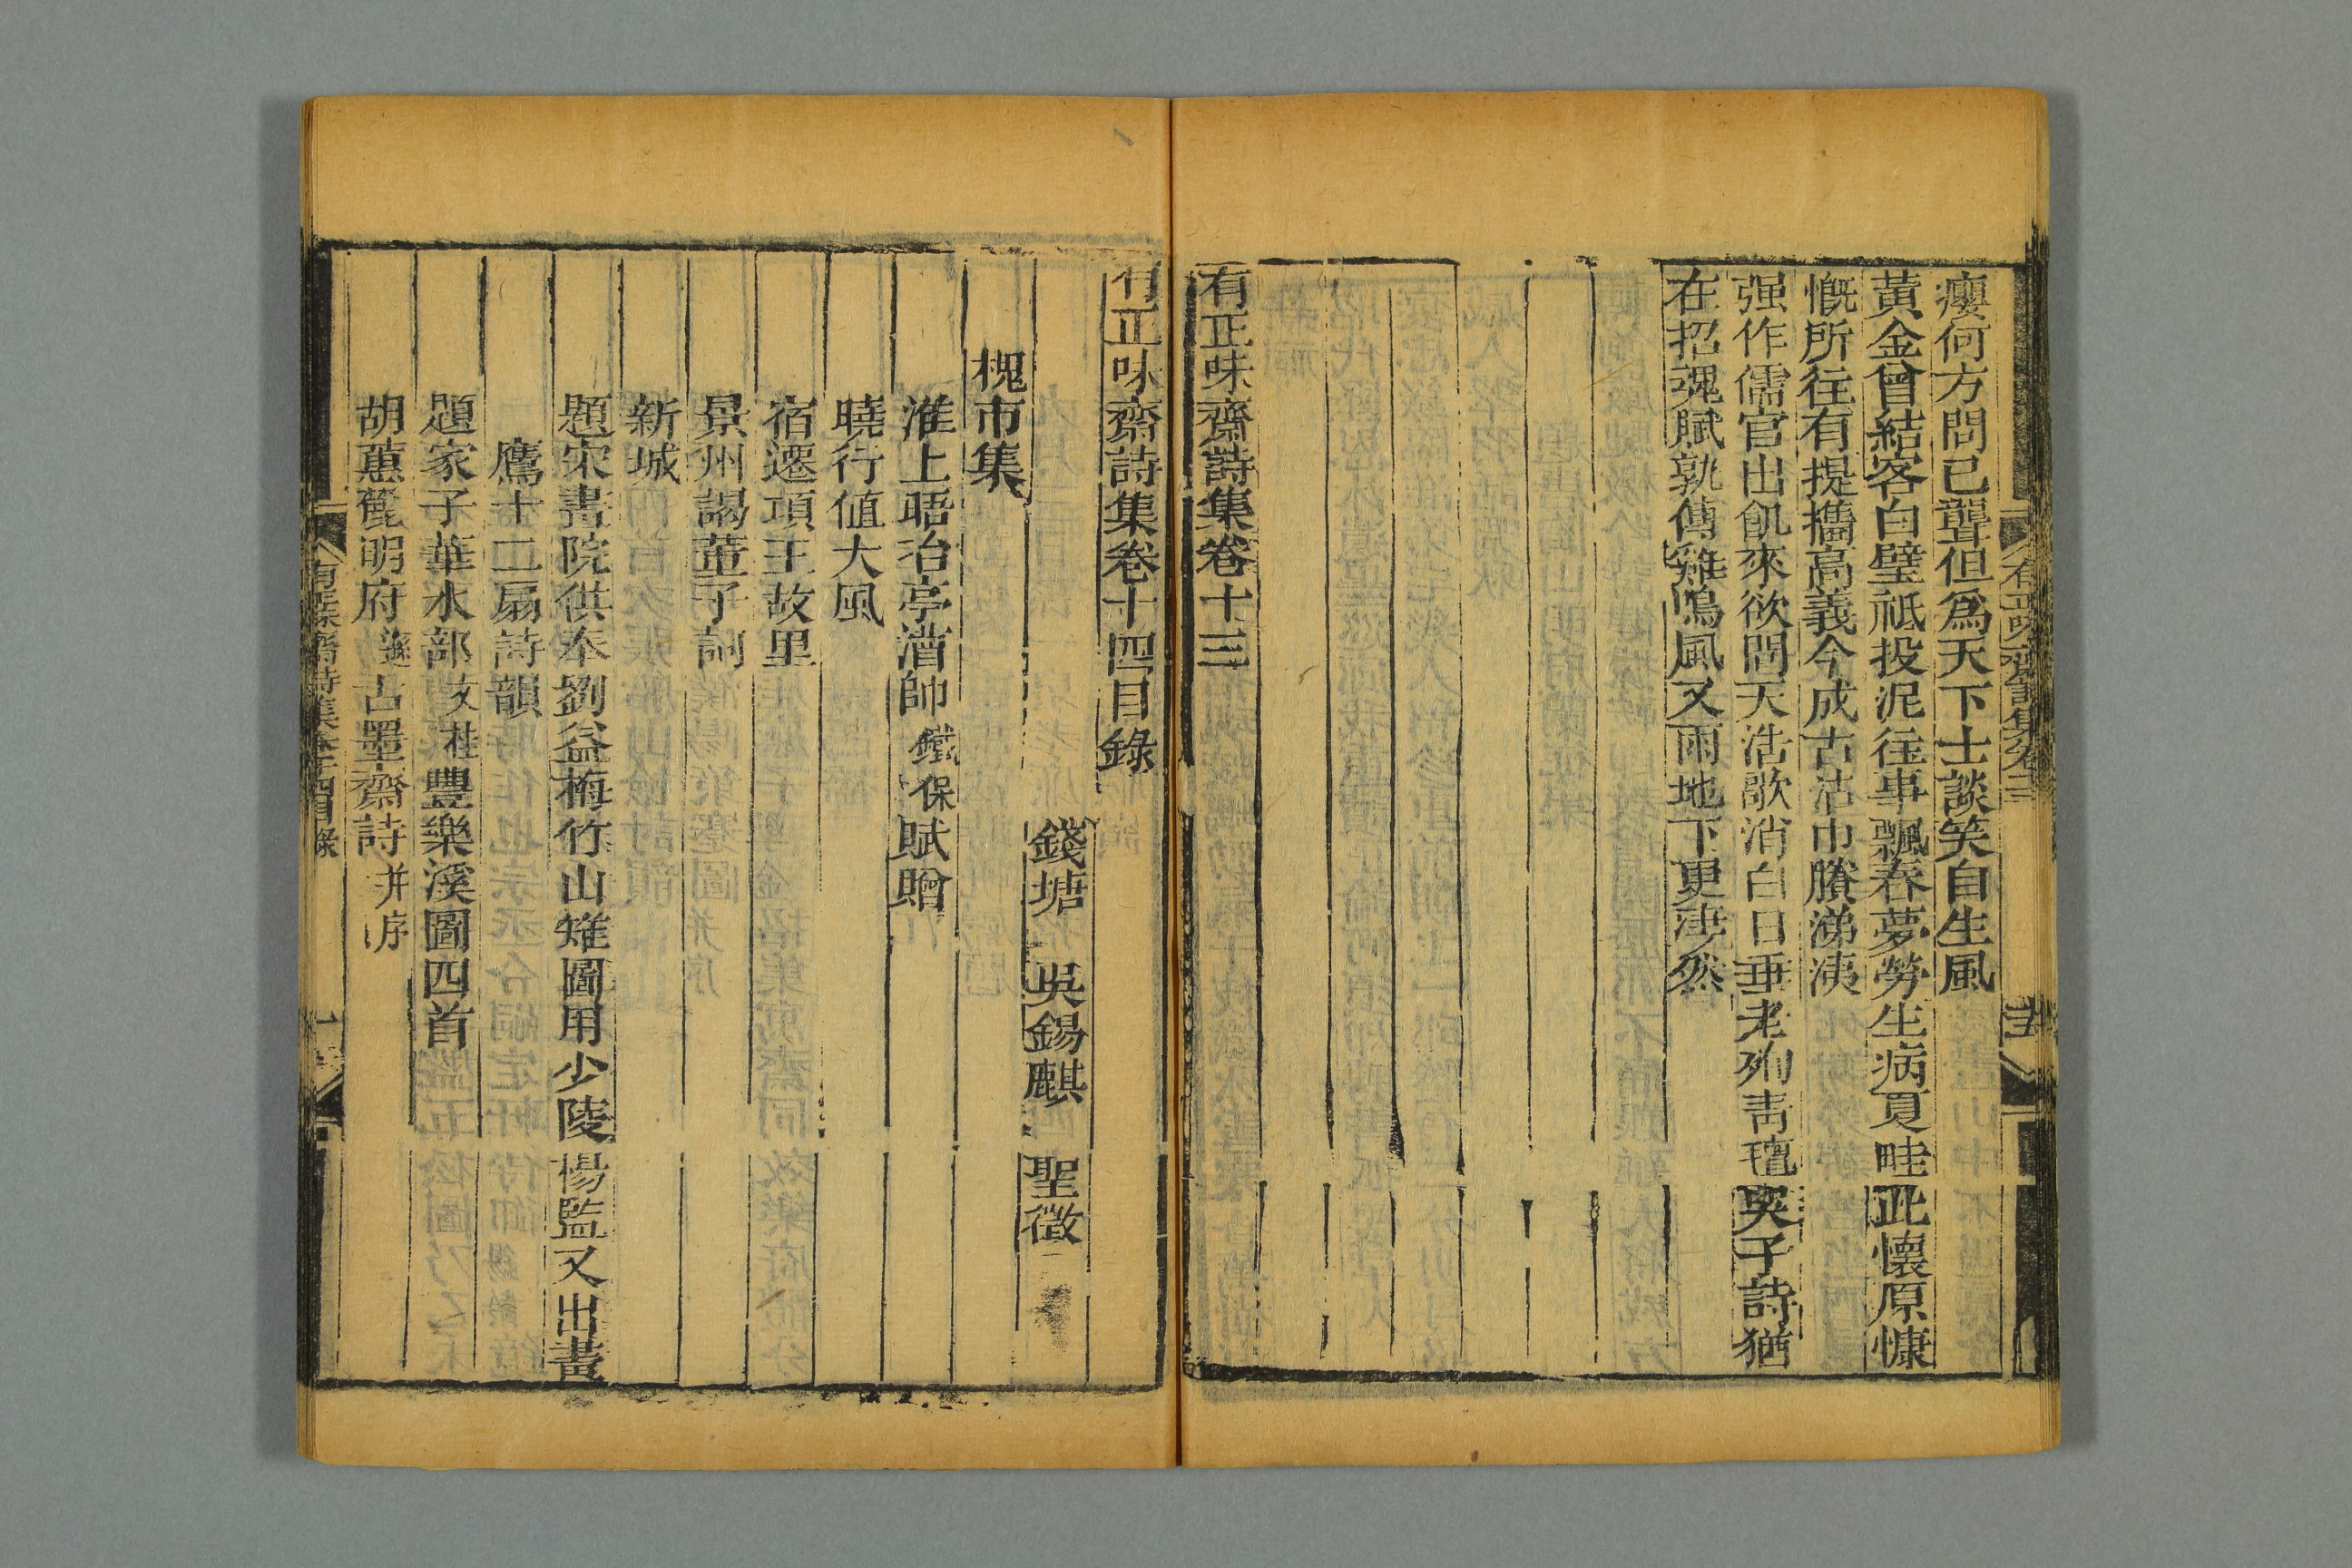 癭何方問已聾但爲天下士談笑自生風
黃金曾結客白璧祗投泥往事飄春夢勞生病夏畦此懷原慷
慨所往有提攜高義今成古沾巾賸涕洟
强作儒官出飢來欲問天浩歌消白日垂老殉靑氊吳子詩猶
在招魂賦孰傳雞鳴風又雨地下更凄然
有正味齋詩集卷十三
有正味齋詩集卷十三
有正味齋詩集卷十四目錄
錢塘 吳錫麒 聖徵
槐市集
淮上晤冶亭漕帥鐵保賦贈
曉行值大風
宿遷項王故里
景州謁董子祠
新城
題宋畫院供奉劉益梅竹山雉圖用少陵楊監又出畫
鷹十二扇詩韻
題家子華水部文桂豐樂溪圖四首
胡蕙麓明府遜古墨齋詩并序
有正味齋詩集卷十四目錄 一